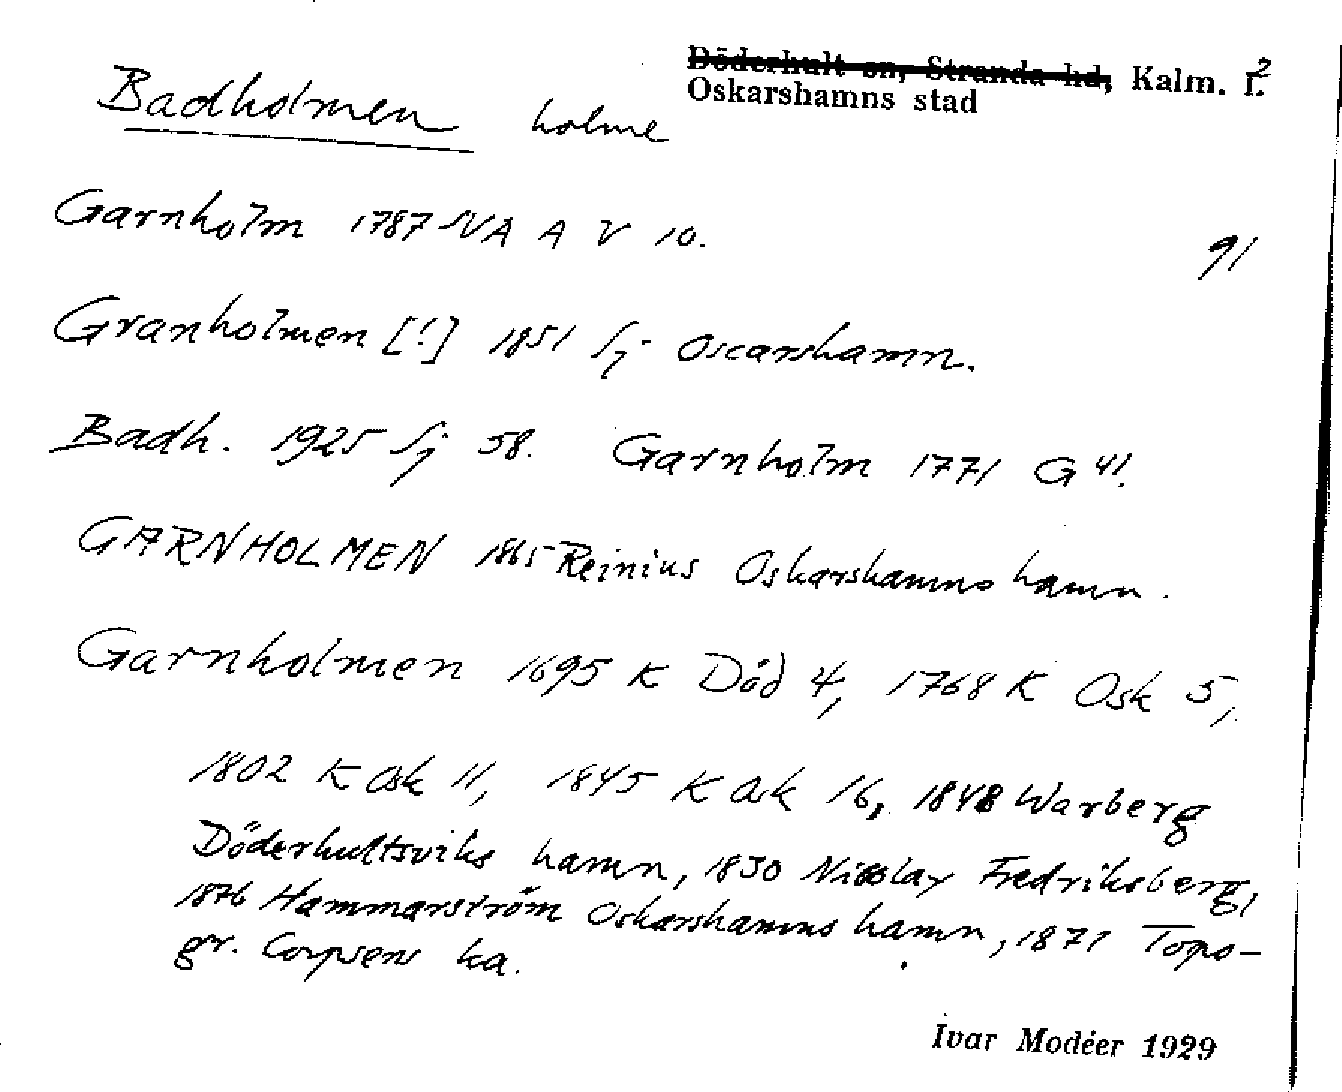 Döderhult sn, Stranda hd, Kalm. l. 2
Oskarshamns stad
Badholmen holme
Garnholm 1787 NA A V 10.
91
Granholmen [!] 1851 Sj. Oscarshamn.
Badh. 1925 Sj 58. Garnholm 1771 G 41.
GARNHOLMEN 1865 Reinius Oskarshamns hamn.
Garnholmen 1695 K Död 4, 1768 K Osk 5,
1802 K Osk 11, 1845 K Osk 16, 1848 Warberg
Döderhultsviks hamn, 1830 Nicolay Fredriksberg,
1876 Hammarström Oskarshamns hamn, 1871 Topo-
gr. Corpsens ka.
Ivar Modéer 1929